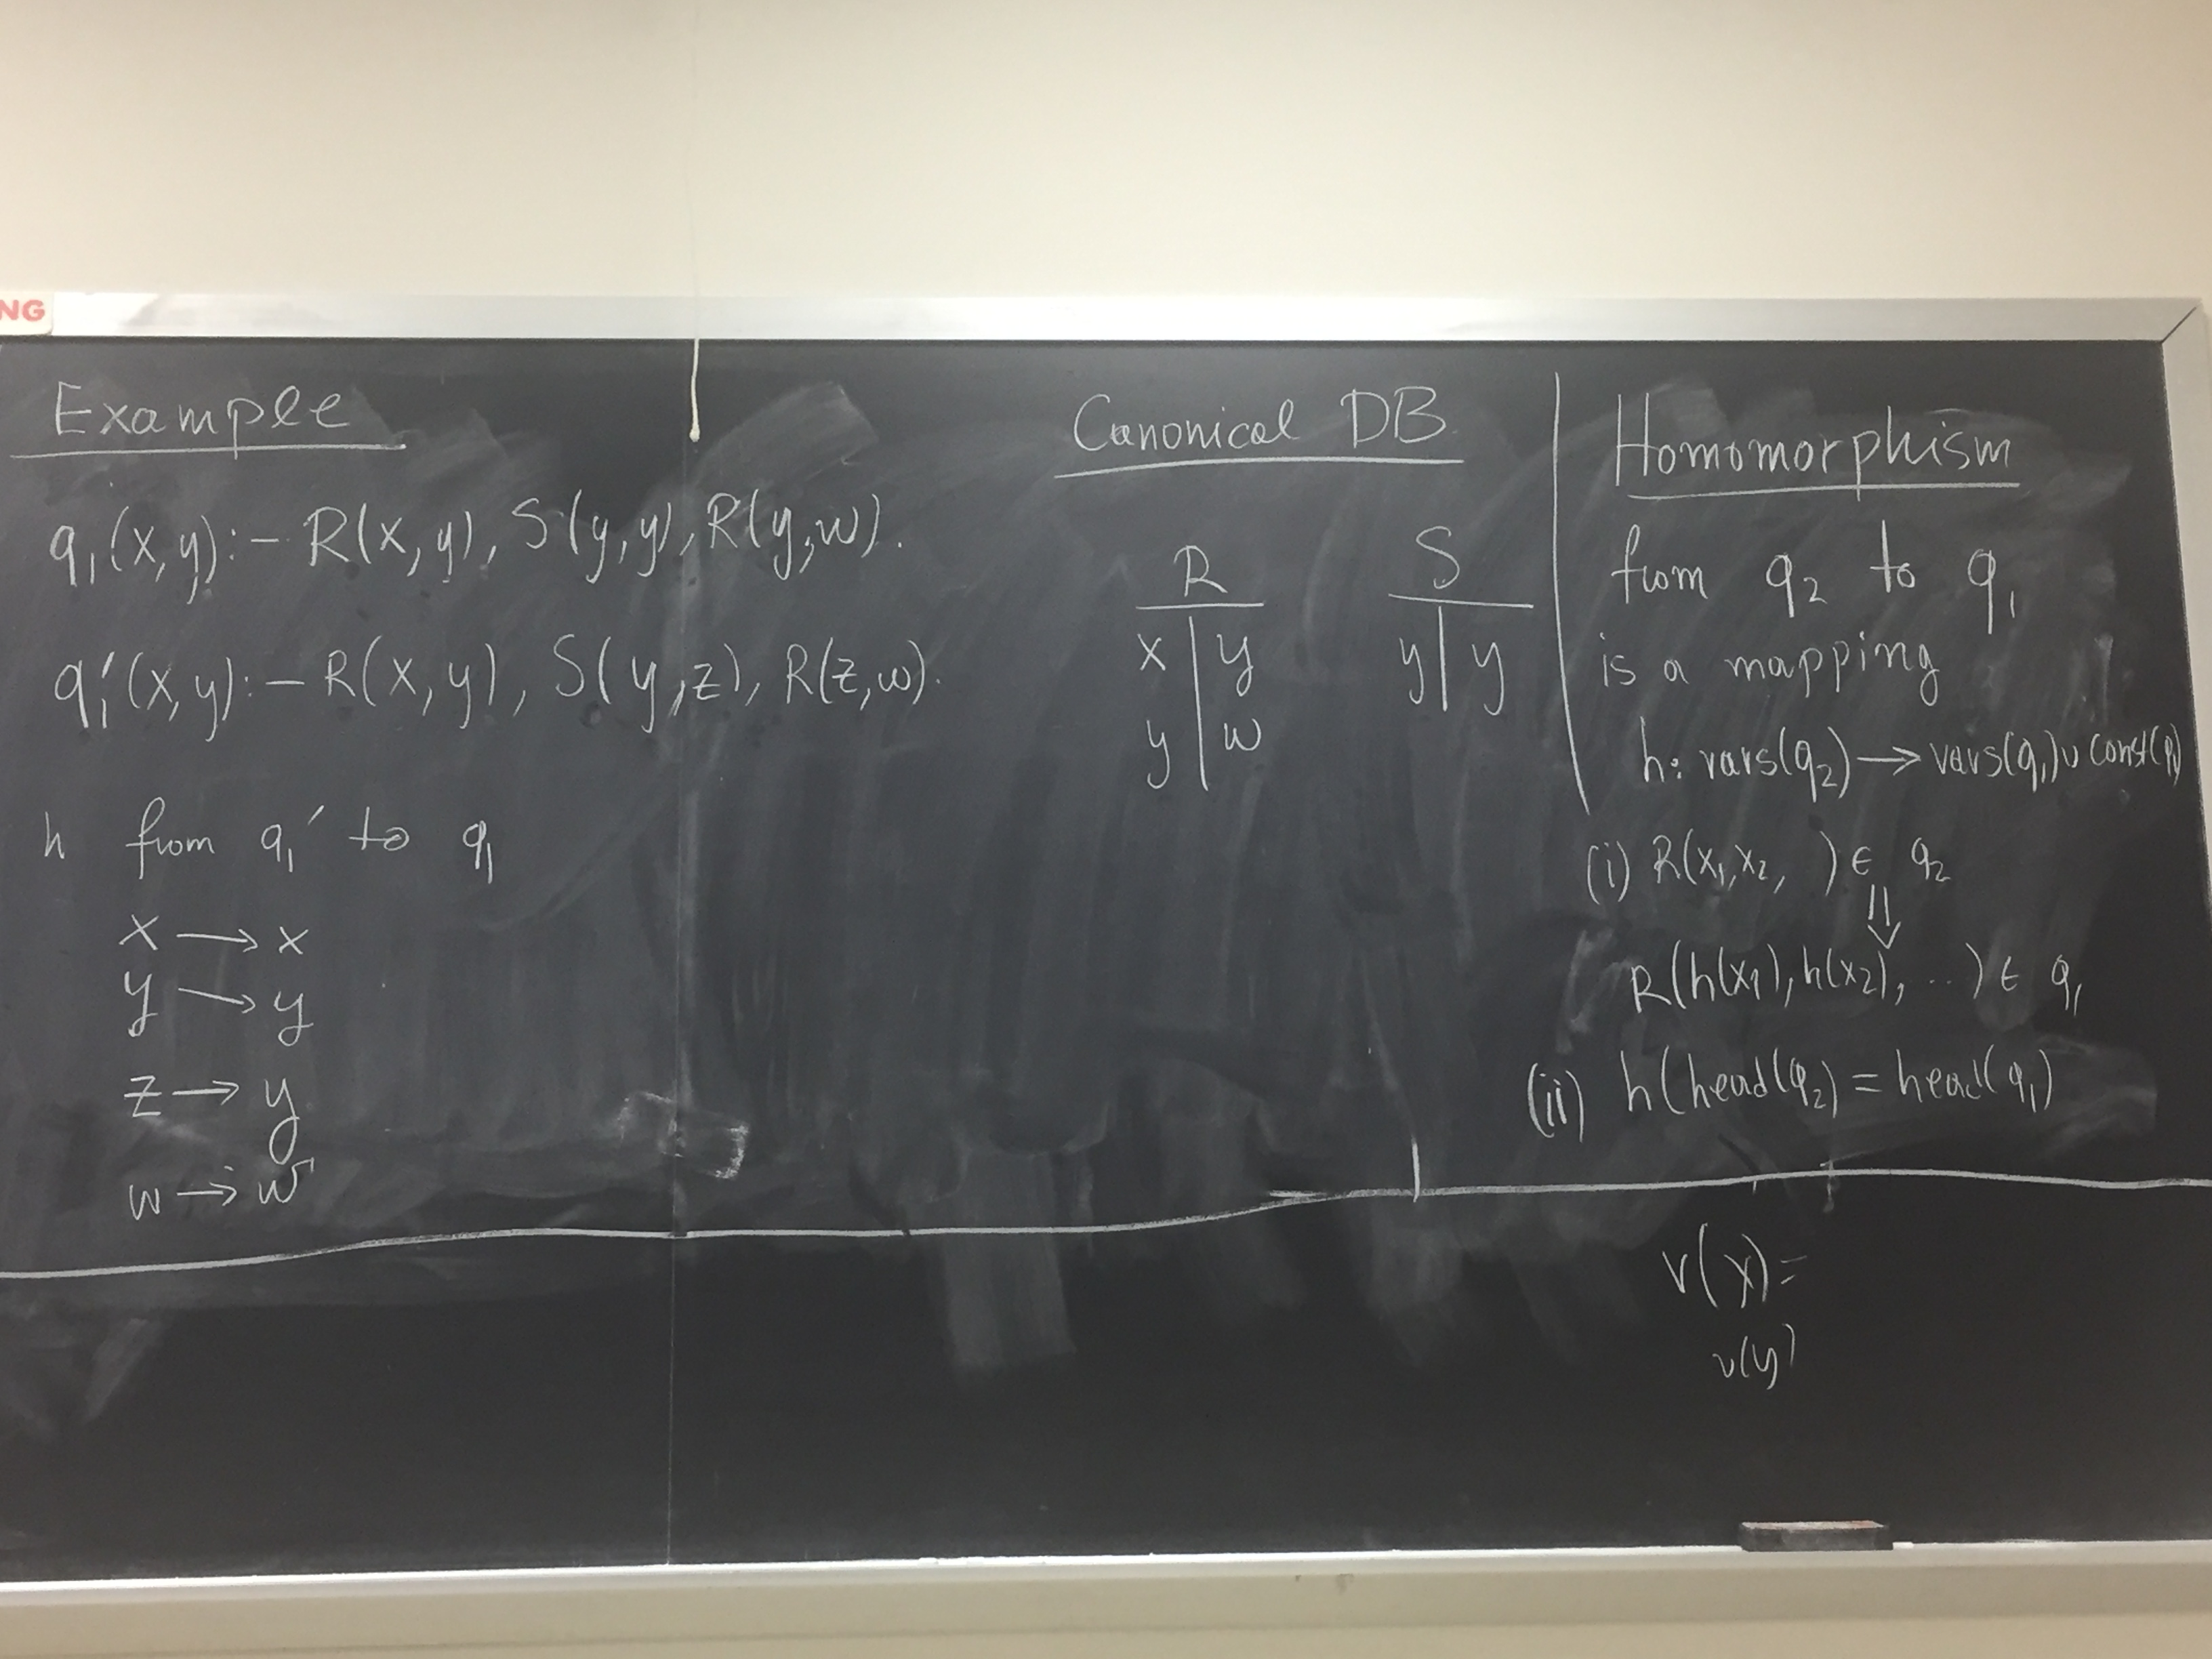 NG
Example
q₁(x,y):– R(x,y), S(y,y), R(y,w).
q₁′(x,y):– R(x,y), S(y,z), R(z,w).
h from q₁′ to q₁
x → x
y → y
z → y
w → w
Canonical DB
R
x | y
y | w
S
y | y
Homomorphism
from q₂ to q₁
is a mapping
h: vars(q₂) → vars(q₁) ∪ const(q₁)
(i) R(x₁,x₂, ) ∈ q₂
⇓
R(h(x₁), h(x₂), ...) ∈ q₁
(ii) h(head(q₂) = head(q₁)
v(x)=
v(y)